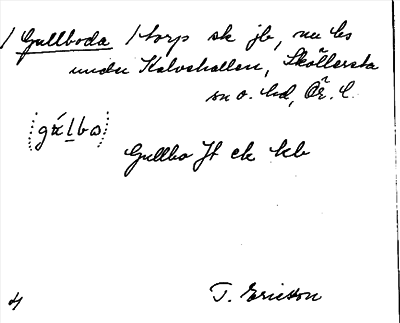 / Gullboda / torp sk jb, nu ls
under Kalvshallen, Sköllersta
sn o. hd, Ör. l.
Gullbo Jt ek kb
T. Ericson